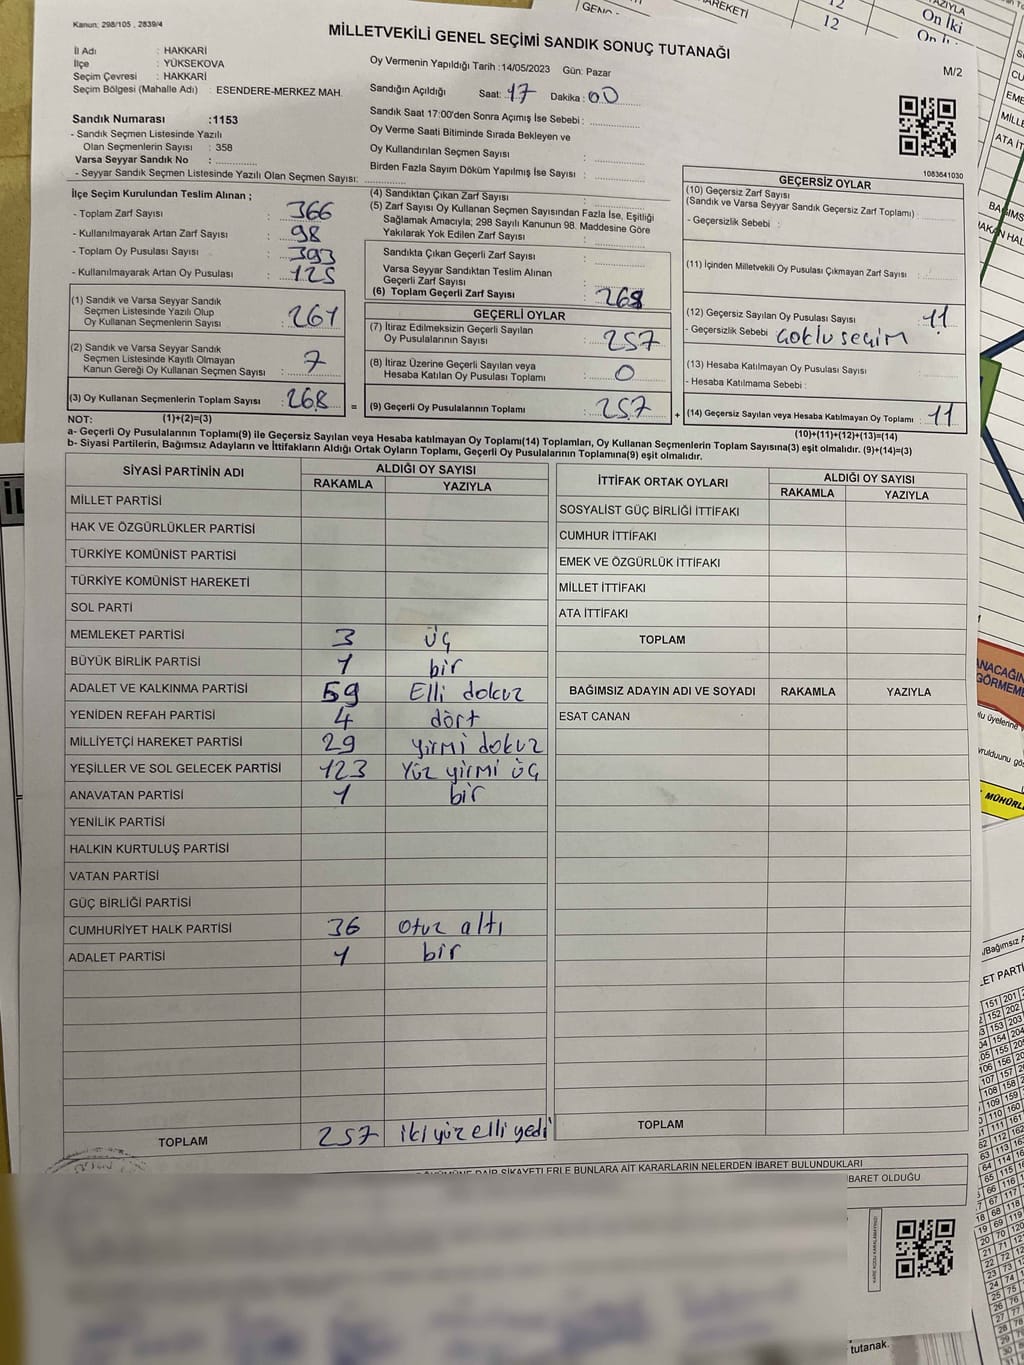 Kanun: 298/105 , 2839/4
MİLLETVEKİLİ GENEL SEÇİMİ SANDIK SONUÇ TUTANAĞI
M/2
İl Adı : HAKKARİ
İlçe : YÜKSEKOVA
Seçim Çevresi : HAKKARİ
Seçim Bölgesi (Mahalle Adı) : ESENDERE-MERKEZ MAH.
Sandık Numarası :1153
- Sandık Seçmen Listesinde Yazılı
Olan Seçmenlerin Sayısı : 358
Varsa Seyyar Sandık No :
- Seyyar Sandık Seçmen Listesinde Yazılı Olan Seçmen Sayısı:
Oy Vermenin Yapıldığı Tarih :14/05/2023 Gün: Pazar
Sandığın Açıldığı Saat: 17 Dakika : 00
Sandık Saat 17:00'den Sonra Açımış İse Sebebi :
Oy Verme Saati Bitiminde Sırada Bekleyen ve
Oy Kullandırılan Seçmen Sayısı :
Birden Fazla Sayım Döküm Yapılmış İse Sayısı :
1083641030
İlçe Seçim Kurulundan Teslim Alınan ;
- Toplam Zarf Sayısı : 366
- Kullanılmayarak Artan Zarf Sayısı : 98
- Toplam Oy Pusulası Sayısı : 393
- Kullanılmayarak Artan Oy Pusulası : 125
(1) Sandık ve Varsa Seyyar Sandık
Seçmen Listesinde Yazılı Olup
Oy Kullanan Seçmenlerin Sayısı : 261
(2) Sandık ve Varsa Seyyar Sandık
Seçmen Listesinde Kayıtlı Olmayan
Kanun Gereği Oy Kullanan Seçmen Sayısı : 7
(3) Oy Kullanan Seçmenlerin Toplam Sayısı : 268 =
NOT: (1)+(2)=(3)
(4) Sandıktan Çıkan Zarf Sayısı :
(5) Zarf Sayısı Oy Kullanan Seçmen Sayısından Fazla İse, Eşitliği
Sağlamak Amacıyla, 298 Sayılı Kanunun 98. Maddesine Göre
Yakılarak Yok Edilen Zarf Sayısı :
Sandıkta Çıkan Geçerli Zarf Sayısı :
Varsa Seyyar Sandıktan Teslim Alınan
Geçerli Zarf Sayısı :
(6) Toplam Geçerli Zarf Sayısı : 268
GEÇERLİ OYLAR
(7) İtiraz Edilmeksizin Geçerli Sayılan
Oy Pusulalarının Sayısı : 257
(8) İtiraz Üzerine Geçerli Sayılan veya
Hesaba Katılan Oy Pusulası Toplamı : 0
(9) Geçerli Oy Pusulalarının Toplamı : 257 +
GEÇERSİZ OYLAR
(10) Geçersiz Zarf Sayısı
(Sandık ve Varsa Seyyar Sandık Geçersiz Zarf Toplamı) :
- Geçersizlik Sebebi :
(11) İçinden Milletvekili Oy Pusulası Çıkmayan Zarf Sayısı :
(12) Geçersiz Sayılan Oy Pusulası Sayısı : 11
- Geçersizlik Sebebi : çoklu seçim
(13) Hesaba Katılmayan Oy Pusulası Sayısı :
- Hesaba Katılmama Sebebi :
(14) Geçersiz Sayılan veya Hesaba Katılmayan Oy Toplamı : 11
(10)+(11)+(12)+(13)=(14)
a- Geçerli Oy Pusulalarının Toplamı(9) ile Geçersiz Sayılan veya Hesaba katılmayan Oy Toplamı(14) Toplamları, Oy Kullanan Seçmenlerin Toplam Sayısına(3) eşit olmalıdır. (9)+(14)=(3)
b- Siyasi Partilerin, Bağımsız Adayların ve İttifakların Aldığı Ortak Oyların Toplamı, Geçerli Oy Pusulalarının Toplamına(9) eşit olmalıdır.
SİYASİ PARTİNİN ADI ALDIĞI OY SAYISI
RAKAMLA YAZIYLA
MİLLET PARTİSİ
HAK VE ÖZGÜRLÜKLER PARTİSİ
TÜRKİYE KOMÜNİST PARTİSİ
TÜRKİYE KOMÜNİST HAREKETİ
SOL PARTİ
MEMLEKET PARTİSİ 3 üç
BÜYÜK BİRLİK PARTİSİ 1 bir
ADALET VE KALKINMA PARTİSİ 59 Elli dokuz
YENİDEN REFAH PARTİSİ 4 dört
MİLLİYETÇİ HAREKET PARTİSİ 29 yirmi dokuz
YEŞİLLER VE SOL GELECEK PARTİSİ 123 Yüz yirmi üç
ANAVATAN PARTİSİ 1 bir
YENİLİK PARTİSİ
HALKIN KURTULUŞ PARTİSİ
VATAN PARTİSİ
GÜÇ BİRLİĞİ PARTİSİ
CUMHURİYET HALK PARTİSİ 36 otuz altı
ADALET PARTİSİ 1 bir
TOPLAM 257 iki yüz elli yedi
İTTİFAK ORTAK OYLARI ALDIĞI OY SAYISI
RAKAMLA YAZIYLA
SOSYALİST GÜÇ BİRLİĞİ İTTİFAKI
CUMHUR İTTİFAKI
EMEK VE ÖZGÜRLÜK İTTİFAKI
MİLLET İTTİFAKI
ATA İTTİFAKI
TOPLAM
BAĞIMSIZ ADAYIN ADI VE SOYADI RAKAMLA YAZIYLA
ESAT CANAN
TOPLAM
ŞİKAYETLERLE BUNLARA AİT KARARLARIN NELERDEN İBARET BULUNDUKLARI
İBARET OLDUĞU
tutanak.